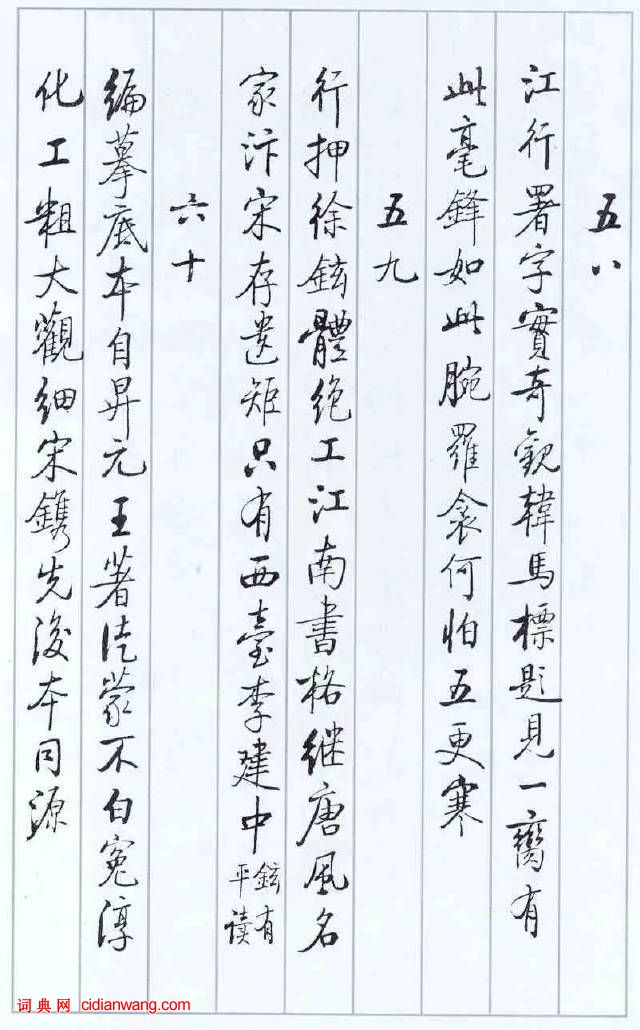 五八
江行署字實奇觀韓馬標題見一臠有
此毫鋒如此腕羅衾何怕五更寒
五九
行押徐鉉體絶工江南書格继唐風名
家汴宋存遺矩只有西臺李建中鉉有平读
六十
編摹底本自昇元王著徒蒙不白冤淳
化工粗大觀細宋鐫先後本同源
词典网 cidianwang.com